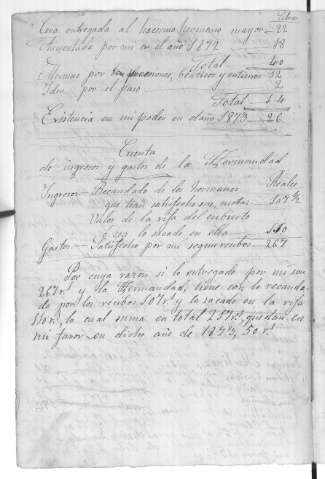 Libras
Cera entregada al tercerno hermano mayor 22
Trayectado por mi en el año 1872 18
Total 40
Mermas por procesiones, beatricos y entierros 12
Idem por el paso 2
Total 14
Existencia en mi poder en el año 1873 26
Cuenta
de ingresos y gastos de la Hermandad
Reales
Ingresos Recaudado de los hermanos
que han satisfecho sus cuotas 107 ½
Valor de la rifa del cubierto
ó sea lo sacado en ella 110
Gastos Satisfecho por mi segun recibos 267
Por cuya razon si lo entregado por mi son
267 r.s y la Hermandad, tiene con lo recauda
do por los recibos 107 r.s y lo sacado en la rifa
110 r.s, lo cual suma en total 217 r.s, quedan en
mi favor en dicho año de 1873, 50 r.s